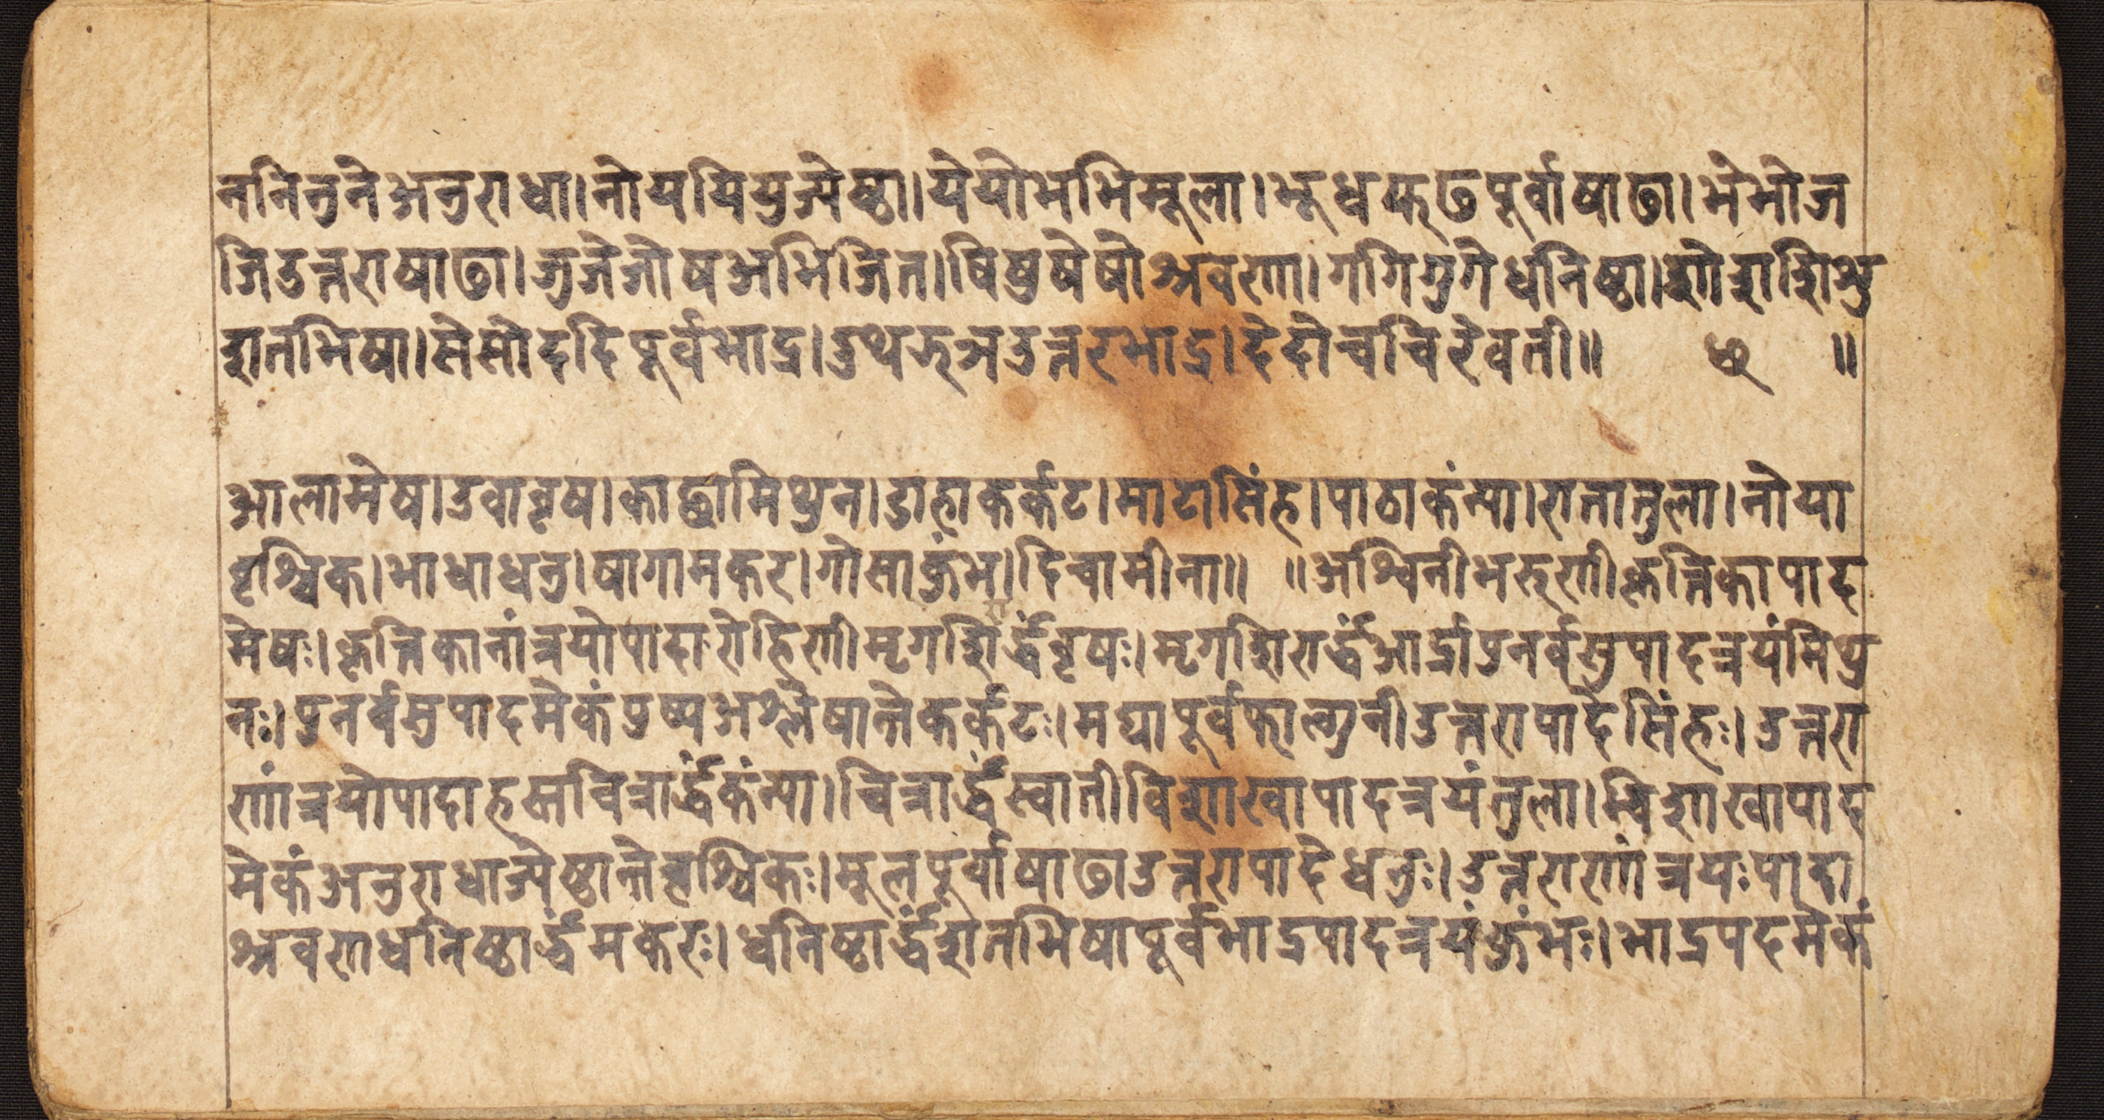 ननिनुने अनुराधा। नोययियुज्येष्ठा। येयोभभिमूला। भूधफढपूर्वाषाढा। भेभोज
जिउत्तराषाढा। जुजेजोषअभिजित। षिषुषेषोश्रवणा। गगिगुगेधनिष्ठा। गोशशिशु
शतभिषा। सेसोददिपूर्वभाद्र। दुथझञउत्तरभाद्र। देदोचचिरेवती॥ ॥
आलामेष। उवावृष। काछामिथुन। डाहाकर्कट। माटासिंह। पाठाकंन्या। रातातुला। नोया
वृश्चिक। भाधाधनु। षागामकर। गोसाकुंभ। दिचामीना॥ ॥ अश्विनीभरणीकृत्तिकापाद
मेषः। कृत्तिकानांत्रयोपादारोहिणीमृगशिरार्द्धंवृषः। मृगशिरार्द्धंआर्द्रापुनर्वसुपादत्रयंमिथु
नः। पुनर्वसुपादमेकंपुष्यअश्लेषान्तेकर्कटः। मघापूर्वफाल्गुनीउत्तरापादेसिंहः। उत्तरा
णांत्रयोपादाहस्तचित्रार्द्धंकंन्या। चित्रार्द्धंस्वातीविशाखापादत्रयंतुला। विशाखापाद
मेकंअनुराधाज्येष्ठान्तेवृश्चिकः। मूलपूर्वाषाढाउत्तरापादेधनुः। उत्तराराणांत्रयःपादा
श्रवणाधनिष्ठार्द्धंमकरः। धनिष्ठार्द्धंशतभिषापूर्वभाद्रपादत्रयंकुंभः। भाद्रपदमेकं